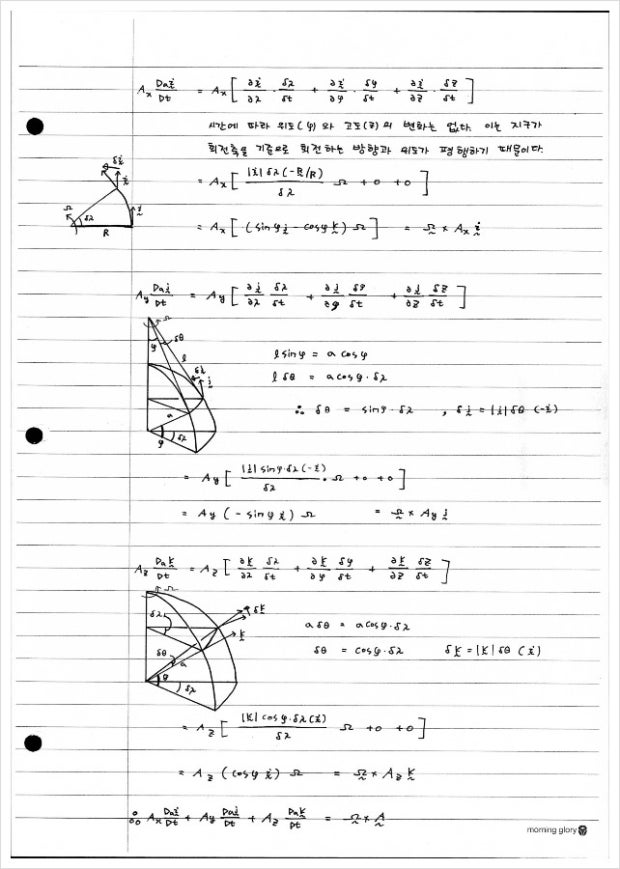 Ax Da i/Dt = Ax [ ∂i/∂λ · δλ/δt + ∂i/∂φ · δφ/δt + ∂i/∂z · δz/δt ]
시간에 따라 위도(φ)와 고도(z)의 변화는 없다. 이는 지구가
회전축을 기준으로 회전하는 방향과 위도가 평행하기 때문이다.
δi
i
Ω
δλ
i
R
= Ax [ |i| δλ (-R/R) / δλ Ω + 0 + 0 ]
= Ax [ (sinφ j - cosφ k) Ω ] = Ω × Ax i
Ay Da j/Dt = Ay [ ∂j/∂λ δλ/δt + ∂j/∂φ δφ/δt + ∂j/∂z δz/δt ]
Ω
φ
δθ
l
δj
j
a
φ
δλ
l sinφ = a cosφ
l δθ = a cosφ · δλ
∴ δθ = sinφ · δλ , δj = |j| δθ (-i)
= Ay [ |j| sinφ · δλ (-i) / δλ · Ω + 0 + 0 ]
= Ay (- sinφ i) Ω = Ω × Ay j
Az Da k/Dt = Az [ ∂k/∂λ δλ/δt + ∂k/∂φ δφ/δt + ∂k/∂z δz/δt ]
Ω
δλ
δk
k
δθ
a
φ
δλ
a δθ = a cosφ · δλ
δθ = cosφ · δλ δk = |k| δθ (i)
= Az [ |k| cosφ · δλ (i) / δλ Ω + 0 + 0 ]
= Az (cosφ i) Ω = Ω × Az k
∴ Ax Da i/Dt + Ay Da j/Dt + Az Da k/Dt = Ω × A
morning glory